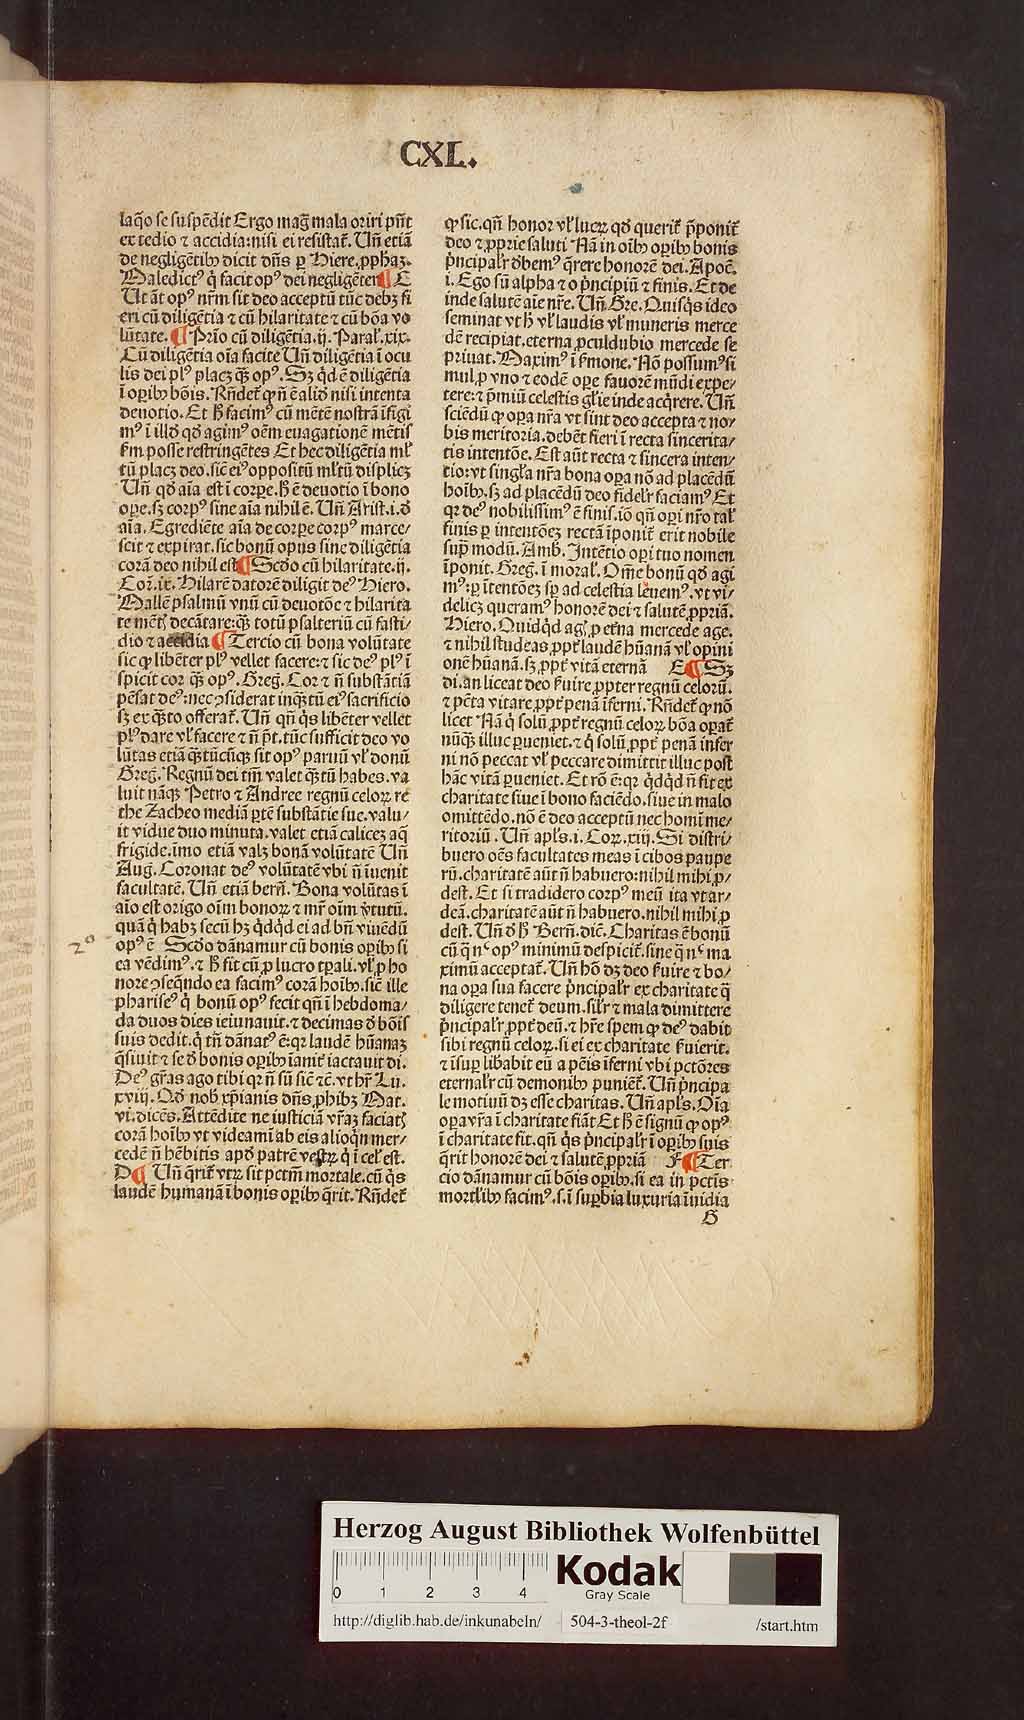 CXL.
laq̄o se suspēdit Ergo mag̃ mala oriri pn̄t
ex tedio ⁊ accidia: nisi ei resistat᷑. Un̄ etiā
de negligētibꝰ dicit dn̄s ꝑ Hiere. ꝓphaꝫ.
Maledictꝰ q̇ facit opꝰ dei negligēter ¶ C
Ut āt opꝰ nr̄m sit deo acceptū tūc debꝫ fi
eri cū diligētia ⁊ cū hilaritate ⁊ cū bōa vo
lūtate. ¶ Prīo cū diligētia. ij. Paral̕. xix.
Cū diligētia oīa facite Un̄ diligētia ī ocu
lis dei plꝰ placꝫ qꝫ̄ opꝰ. Sꝫ qͥd ē diligētia
ī oꝑibꝰ bōis. Rn̄det᷑ ꝙ n̄ ē aliō nisi intenta
deuotio. Et ħ facimꝰ cū mētē nostrā īfigi
mꝰ ī illō qō agimꝰ oēm euagationē mētis
ẜm posse restringētes Et hec diligētia ml̕
tū placꝫ deo. sic̄ eiꝰ oppositū ml̕tū displicꝫ
Un̄ qō aīa est ī corꝑe. ħ ē deuotio ī bono
oꝑe. sꝫ corpꝰ sine aīa nihil ē. Un̄ Arist. i. ō
aīa. Egrediēte aīa de corꝑe corpꝰ marce/
scit ⁊ expirat. sic bonū opus sine diligētia
corā deo nihil est ¶ Scōo cū hilaritate. ij.
Cor̄. ix. Hilarē datorē diligit deꝰ. Hiero.
Mallē psalmū vnū cū deuotōe ⁊ hilarita
te mēt̕ꝭ decātare: qꝫ̄ totū psalteriū cū fasti/
dio ⁊ accidia ¶ Tercio cū bona volūtate
sic ꝙ libēter plꝰ vellet facere: ⁊ sic deꝰ plꝰ ī
spicit cor qꝫ̄ opꝰ. Greg. Cor ⁊ n̄ substātiā
pēsat deꝰ: nec ꝯsiderat inqꝫ̄tū eiꝰ sacrificio
sꝫ ex qꝫ̄to offerat᷑. Un̄ qn̄ qͥs libēter vellet
plꝰ dare vl̕ facere ⁊ n̄ p̄t. tūc sufficit deo vo
lūtas etiā qꝫ̄tūcūqꝫ sit opꝰ paruū vl̕ donū
Greg̃. Regnū dei tm̄ valet qꝫ̄tū habes. va
luit nāqꝫ Petro ⁊ Andree regnū celoꝝ re
the Zacheo mediā ꝑtē substātie sue. valu/
it vidue duo minuta. valet etiā calicꝫ aq̄
frigide. īmo etiā valꝫ bonā volūtatē Un̄
Aug. Coronat deꝰ volūtatē vbi n̄ īuenit
facultatē. Un̄ etiā bern̄. Bona volūtas ī
aīo est origo oīm bonoꝝ ⁊ mr̄ oīm v̓tutū.
quā q̇ habꝫ secū hꝫ qͥdqͥd ei ad bn̄ viuēdū
2o opꝰ ē Scōo dānamur cū bonis oꝑibꝰ si
ea vēdimꝰ. ⁊ ħ fit cū ꝓ lucro tꝑali. vl̕ ꝓ ho
nore ꝯseqͣndo ea facimꝰ corā hoībꝰ. sic̄ ille
phariseꝰ q̇ bonū opꝰ fecit qn̄ ī hebdoma/
da duos dies ieiunauit. ⁊ decimas ō bōis
suis dedit. q̇ tn̄ dānatꝰ ē: qꝛ laudē hūanaꝫ
q̄siuit ⁊ se ō bonis oꝑibꝰ īanit̕ iactauit di.
Deꝰ gr̄as ago tibi qꝛ n̄ sū sic̄ ⁊c̄. vt hr̄ Lu.
xviij. Qō nob̕ xp̄ianis dn̄s ꝓhibꝫ Mat.
vi. dicēs. Attēdite ne iusticiā vr̄aꝫ faciat̕ꝭ
corā hoībꝰ vt videamī ab eis alioqͥn mer/
cedē n̄ hēbitis apō patrē vestꝝ q̇ ī cel̕ est.
D ¶ Un̄ q̄rit᷑ vtꝝ sit pctm̄ mortale. cū qͥs
laudē humanā ī bonis oꝑibꝰ q̄rit. Rn̄det᷑
ꝙ sic. qn̄ honor vl̕ lucꝝ qō querit᷑ p̄ponit᷑
deo ⁊ ꝓprie saluti Nā in oībꝰ oꝑibꝰ bonis
p̓ncipal̕r ōbemꝰ q̄rere honorē dei. Apoc̄.
i. Ego sū alpha ⁊ o p̓ncipiū ⁊ finis. Et de
inde salutē aīe nr̄e. Un̄ Gre. Quisqͥs ideo
seminat vt ħ vl̕ laudis vl̕ muneris merce
dē recipiat. eterna ꝓculdubio mercede se
priuat. Maximꝰ ī ẜmone. Nō possumꝰ si
mul ꝓ vno ⁊ eodē oꝑe fauorē mūdi expe/
tere: ⁊ p̄miū celestis gl̕ie inde acq̄rere. Un̄
sciēdū ꝙ oꝑa nr̄a vt sint deo accepta ⁊ no/
bis meritoria. debēt fieri ī recta sincerita/
tis intentōe. Est aūt recta ⁊ sincera inten/
tio: vt singl̕a nr̄a bona oꝑa nō ad placēdū
hoībꝰ. sꝫ ad placēdū deo fidel̕r faciamꝰ Et
qꝛ deꝰ nobilissimꝰ ē finis. iō qn̄ oꝑi nr̄o tal̕
finis ꝑ intentōeꝫ rectā īponit᷑ erit nobile
suꝑ modū. Amb̕. Intētio oꝑi tuo nomen
īponit. Greg̃. ī moral̕. Om̄e bonū qō agi
mꝰ: ꝑ ītentōeꝫ sꝑ ad celestia leuemꝰ. vt vi/
delicꝫ queramꝰ honorē dei ⁊ salutē ꝓpriā.
Hiero. Quidqͥd ag̕ꝭ ꝓ et̓na mercede age.
⁊ nihil studeas ꝓpt̕ laudē hūanā vl̕ opini
onē hūanā. sꝫ ꝓpt̕ vitā eternā E ¶ Sꝫ
di. an liceat deo ẜuire ꝓpter regnū celorū.
⁊ pctā vitare ꝓpt̕ penā īferni. Rn̄det᷑ ꝙ nō
licet Nā q̇ solū ꝓpt̕ regnū celoꝝ bōa oꝑat᷑
nūqꝫ̄ illuc ꝑueniet. ⁊ q̇ solū ꝓpt̕ penā infer
ni nō peccat vl̕ peccare dimittit illuc post
hāc vitā ꝑueniet. Et rō ē: qꝛ qͥdqͥd n̄ fit ex
charitate siue ī bono faciēdo. siue in malo
omittēdo. nō ē deo acceptū nec homī me/
ritoriū. Un̄ apl̕s. i. Coꝝ. xiij. Si distri/
buero oēs facultates meas ī cibos paupe
rū. charitatē aūt n̄ habuero: nihil mihi ꝓ/
dest. Et si tradidero corpꝰ meū ita vt ar/
deā. charitatē aūt n̄ habuero. nihil mihi ꝓ
dest. Un̄ ō ħ Bern̄. dic̄. Charitas ē bonū
cū q̄ nᶜ opꝰ minimū despicit᷑. sine q̄ nᶜ ma
ximū acceptat᷑. Un̄ hō dꝫ deo ẜuire ⁊ bo/
na oꝑa sua facere p̓ncipal̕r ex charitate q̄
diligere tenet᷑ deum. sil̕r ⁊ mala dimittere
p̓ncipal̕r ꝓpt̕ deū. ⁊ hr̄e spem ꝙ deꝰ dabit
sibi regnū celoꝝ. si ei ex charitate ẜuierit.
⁊ īsuꝑ libabit eū a pēis īferni vbi pctōres
eternal̕r cū demonibꝰ puniēt᷑. Un̄ p̓ncipa
le motiuū dꝫ esse charitas. Un̄ apl̕s. Oīa
oꝑa vr̄a ī charitate fiāt Et ħ ē signū ꝙ opꝰ
ī charitate fit. qn̄ qͥs p̓ncipal̕r ī oꝑibꝰ suis
q̄rit honorē dei ⁊ salutē ꝓpriā F ¶ Ter
cio dānamur cū bōis oꝑibꝰ. si ea in pctīs
mortl̕ibꝰ facimꝰ. s. ī suꝑbia luxuria īuidia
B
Herzog August Bibliothek Wolfenbüttel
0 1 2 3 4
Kodak
Gray Scale
http://diglib.hab.de/inkunabeln/ 504-3-theol-2f /start.htm